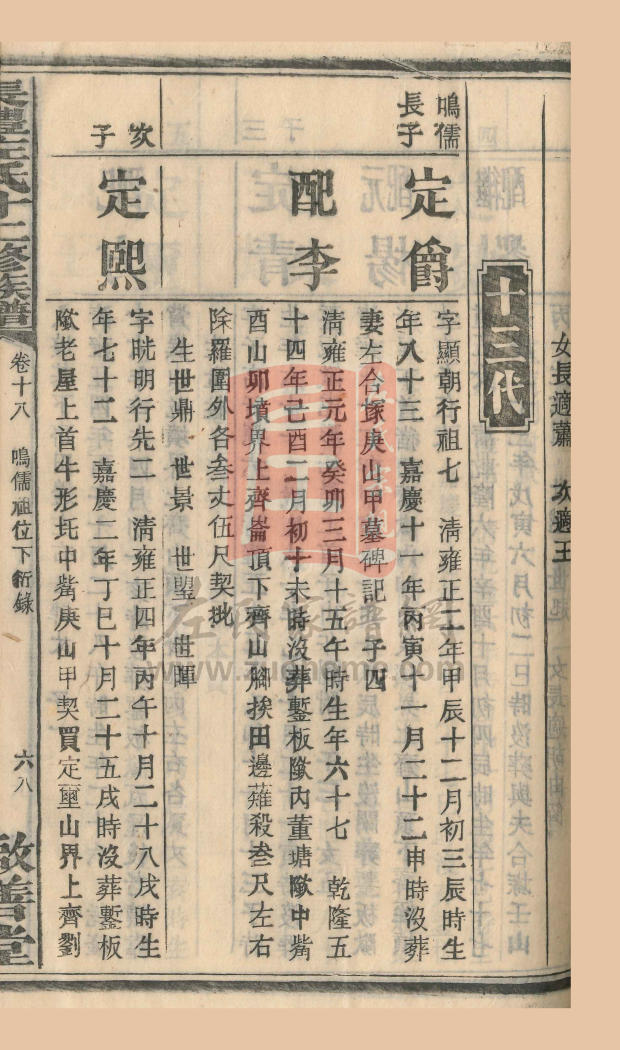 女長適蕭 次適王
十三代
鳴儒
長子
定爵
字顯朝行祖七 淸雍正二年甲辰十二月初三辰時生
年八十三 嘉慶十一年丙寅十一月二十二申時沒葬
妻左合塚庚山甲墓碑記 子四
配李
淸雍正元年癸卯三月十五午時生年六十七 乾隆五
十四年己酉二月初十未時沒葬鏨板陂內董塘陂中嘴
酉山卯墳界上齊崙頂下齊山腳挨田邊薙殺叁尺左右
除羅圍外各叁丈伍尺契批
生世鼎 世景 世曌 世暉
次
子
定熙
字晄明行先二 淸雍正四年丙午十月二十八戌時生
年七十二 嘉慶二年丁巳十月二十五戌時沒葬鏨板
陂老屋上首牛形圫中嘴庚山甲契買定璽山界上齊劉
長醴左氏十二修族譜
卷十八 鳴儒祖位下衍錄
六八
啟善堂
左氏家譜網
www.zuoneme.com